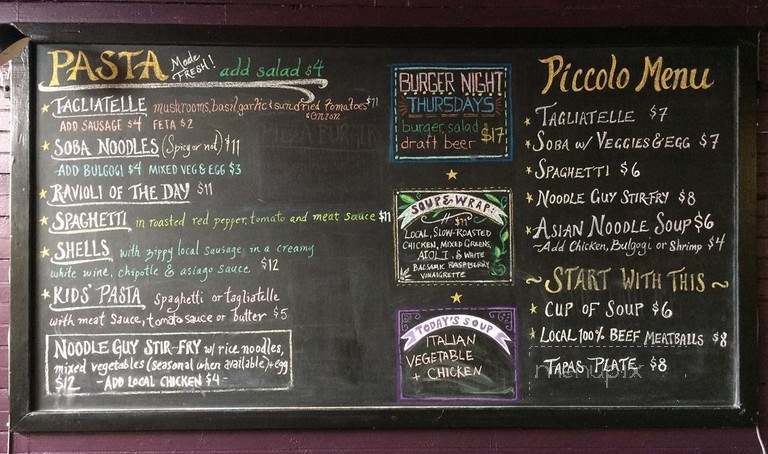 PASTA Made FRESH! add salad $4
TAGLIATELLE mushrooms, basil, garlic & sundried tomatoes $11
& onion
ADD SAUSAGE $4 FETA $2
SOBA NOODLES (Spicy or not) $11
ADD BULGOGI $4 MIXED VEG & EGG $3
RAVIOLI OF THE DAY $11
SPAGHETTI in roasted red pepper, tomato and meat sauce $11
SHELLS with zippy local sausage in a creamy
white wine, chipotle & asiago sauce $12
KIDS' PASTA spaghetti or tagliatelle
with meat sauce, tomato sauce or butter $5
NOODLE GUY STIR-FRY w/ rice noodles,
mixed vegetables (seasonal when available) + egg
$12 -ADD LOCAL CHICKEN $4-
BURGER NIGHT
THURSDAYS
burger, salad
draft beer $17
SOUP & WRAP:
LOCAL, SLOW-ROASTED
CHICKEN, MIXED GREENS,
AIOLI, & WHITE
BALSAMIC RASPBERRY
VINAIGRETTE
TODAY'S SOUP
ITALIAN
VEGETABLE
+ CHICKEN
Piccolo Menu
TAGLIATELLE $7
SOBA w/ VEGGIES & EGG $7
SPAGHETTI $6
NOODLE GUY STIR-FRY $8
ASIAN NOODLE SOUP $6
-Add Chicken, Bulgogi or Shrimp $4
~START WITH THIS~
CUP OF SOUP $6
LOCAL 100% BEEF MEATBALLS $8
TAPAS PLATE $8
menupix